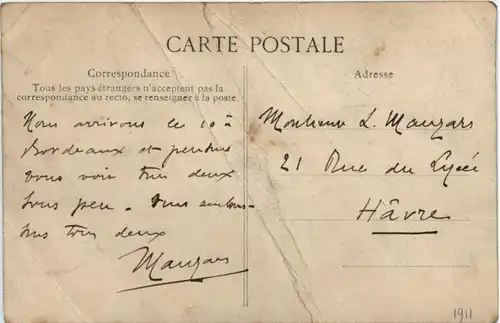 CARTE POSTALE
Correspondance
Tous les pays étrangers n'acceptent pas la
correspondance au recto, se renseigner à la poste.
Nous arrivons le 10 à
Bordeaux et pensons
vous voir tous deux
sous peu. Vous embras-
sons tous deux
Mauzars
Adresse
Monsieur L. Mauzars
21 Rue du Lycée
Hâvre
1911